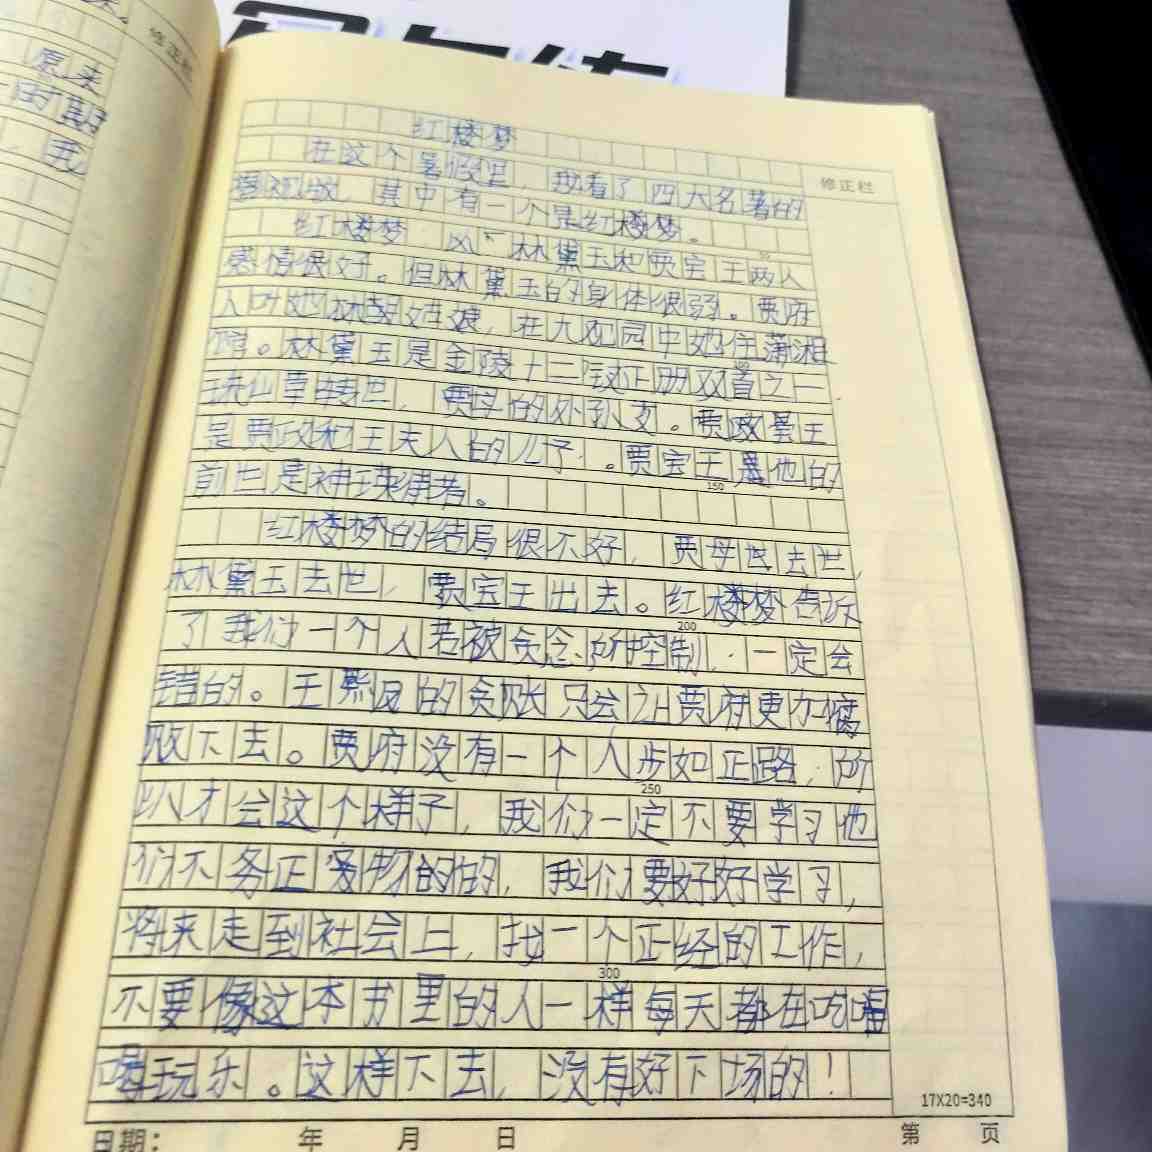 原来
修正栏
红楼梦
修正栏
在这个暑假里，我看了四大名著的
影视版，其中有一个是红楼梦。
红楼梦 林黛玉和贾宝玉两人
感情很好。但林黛玉的身体很弱。贾府
人叫她林姑娘，在大观园中她住潇湘
馆。林黛玉是金陵十二钗正册双首之一
绛仙草转世，贾母的外孙女。贾宝玉
是贾政和王夫人的儿子。贾宝玉是他的
150
前世是神瑛侍者。
红楼梦的结局很不好，贾母去世，
林黛玉去世，贾宝玉出去。红楼梦告诉
200
了我们一个人若被贪念所控制，一定会
错的。王熙凤的贪账只会让贾府更加腐
败下去。贾府没有一个人步如正路，所
250
以才会这个样子，我们一定不要学习他
们不务正 的，我们要好好学习，
将来走到社会上，找一个正经的工作，
300
不要像这本书里的人一样每天都在吃喝
玩乐。这样下去，没有好下场的！
17X20=340
日期： 年 月 日 第 页